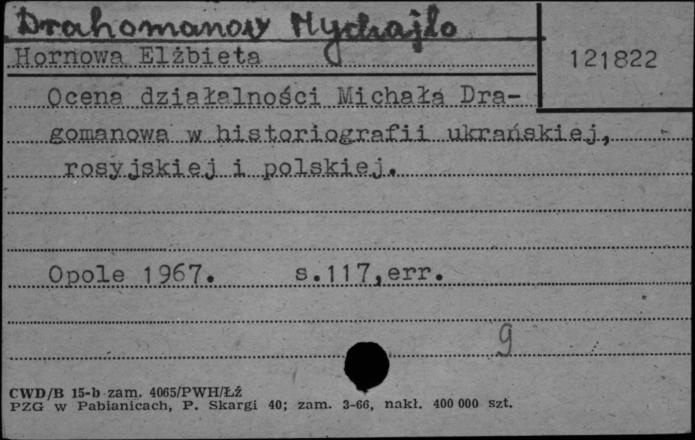 Drahomanow Mychajło
Hornowa Elżbieta
121822
Ocena działalności Michała Dra-
gomanowa w historiografii ukrańskiej,
rosyjskiej i polskiej.
Opole 1967. s.117,err.
9
CWD/B 15-b zam. 4065/PWH/Łź
PZG w Pabianicach, P. Skargi 40; zam. 3-66, nakł. 400 000 szt.